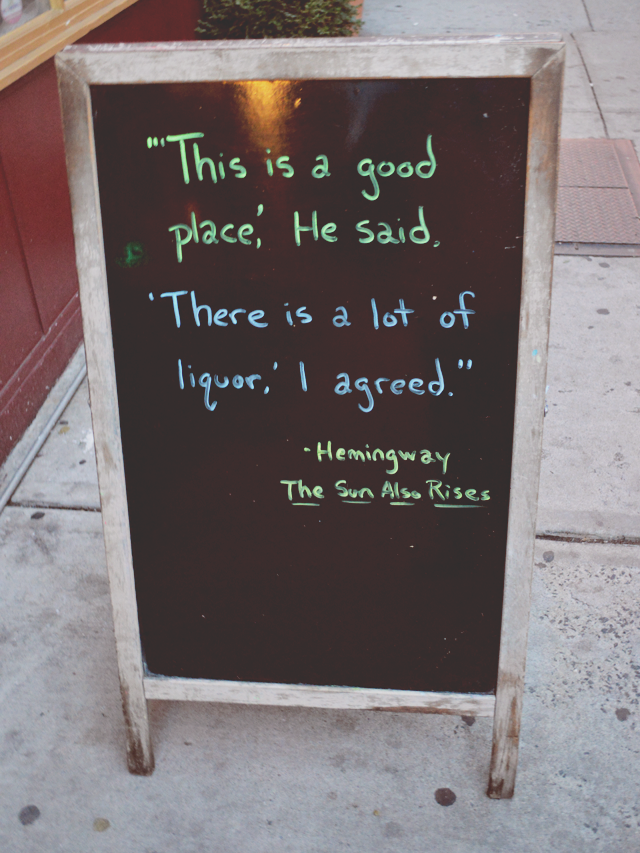 "'This is a good
place,' He said.
'There is a lot of
liquor,' I agreed."
-Hemingway
The Sun Also Rises